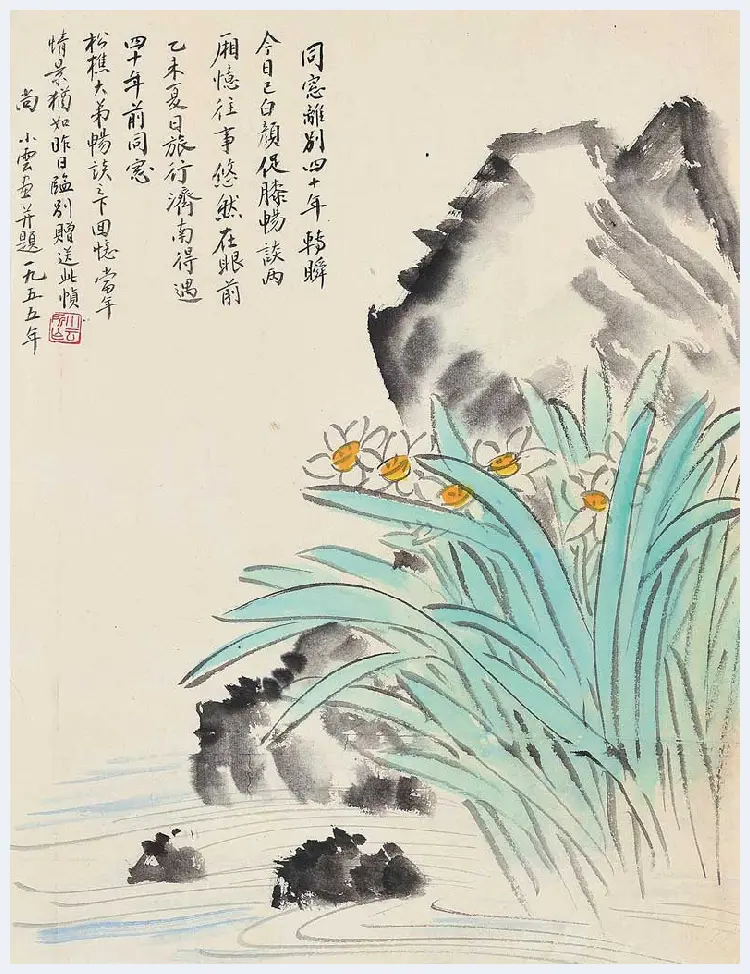 同窓離別四十年轉瞬
今日已白顏促膝暢談两
廂憶往事悠然在眼前
乙未夏日旅行濟南得遇
四十年前同窓
松樵大弟暢談之下回憶當年
情景猶如昨日臨別贈送此幀
尚小雲画并題一九五五年
小云